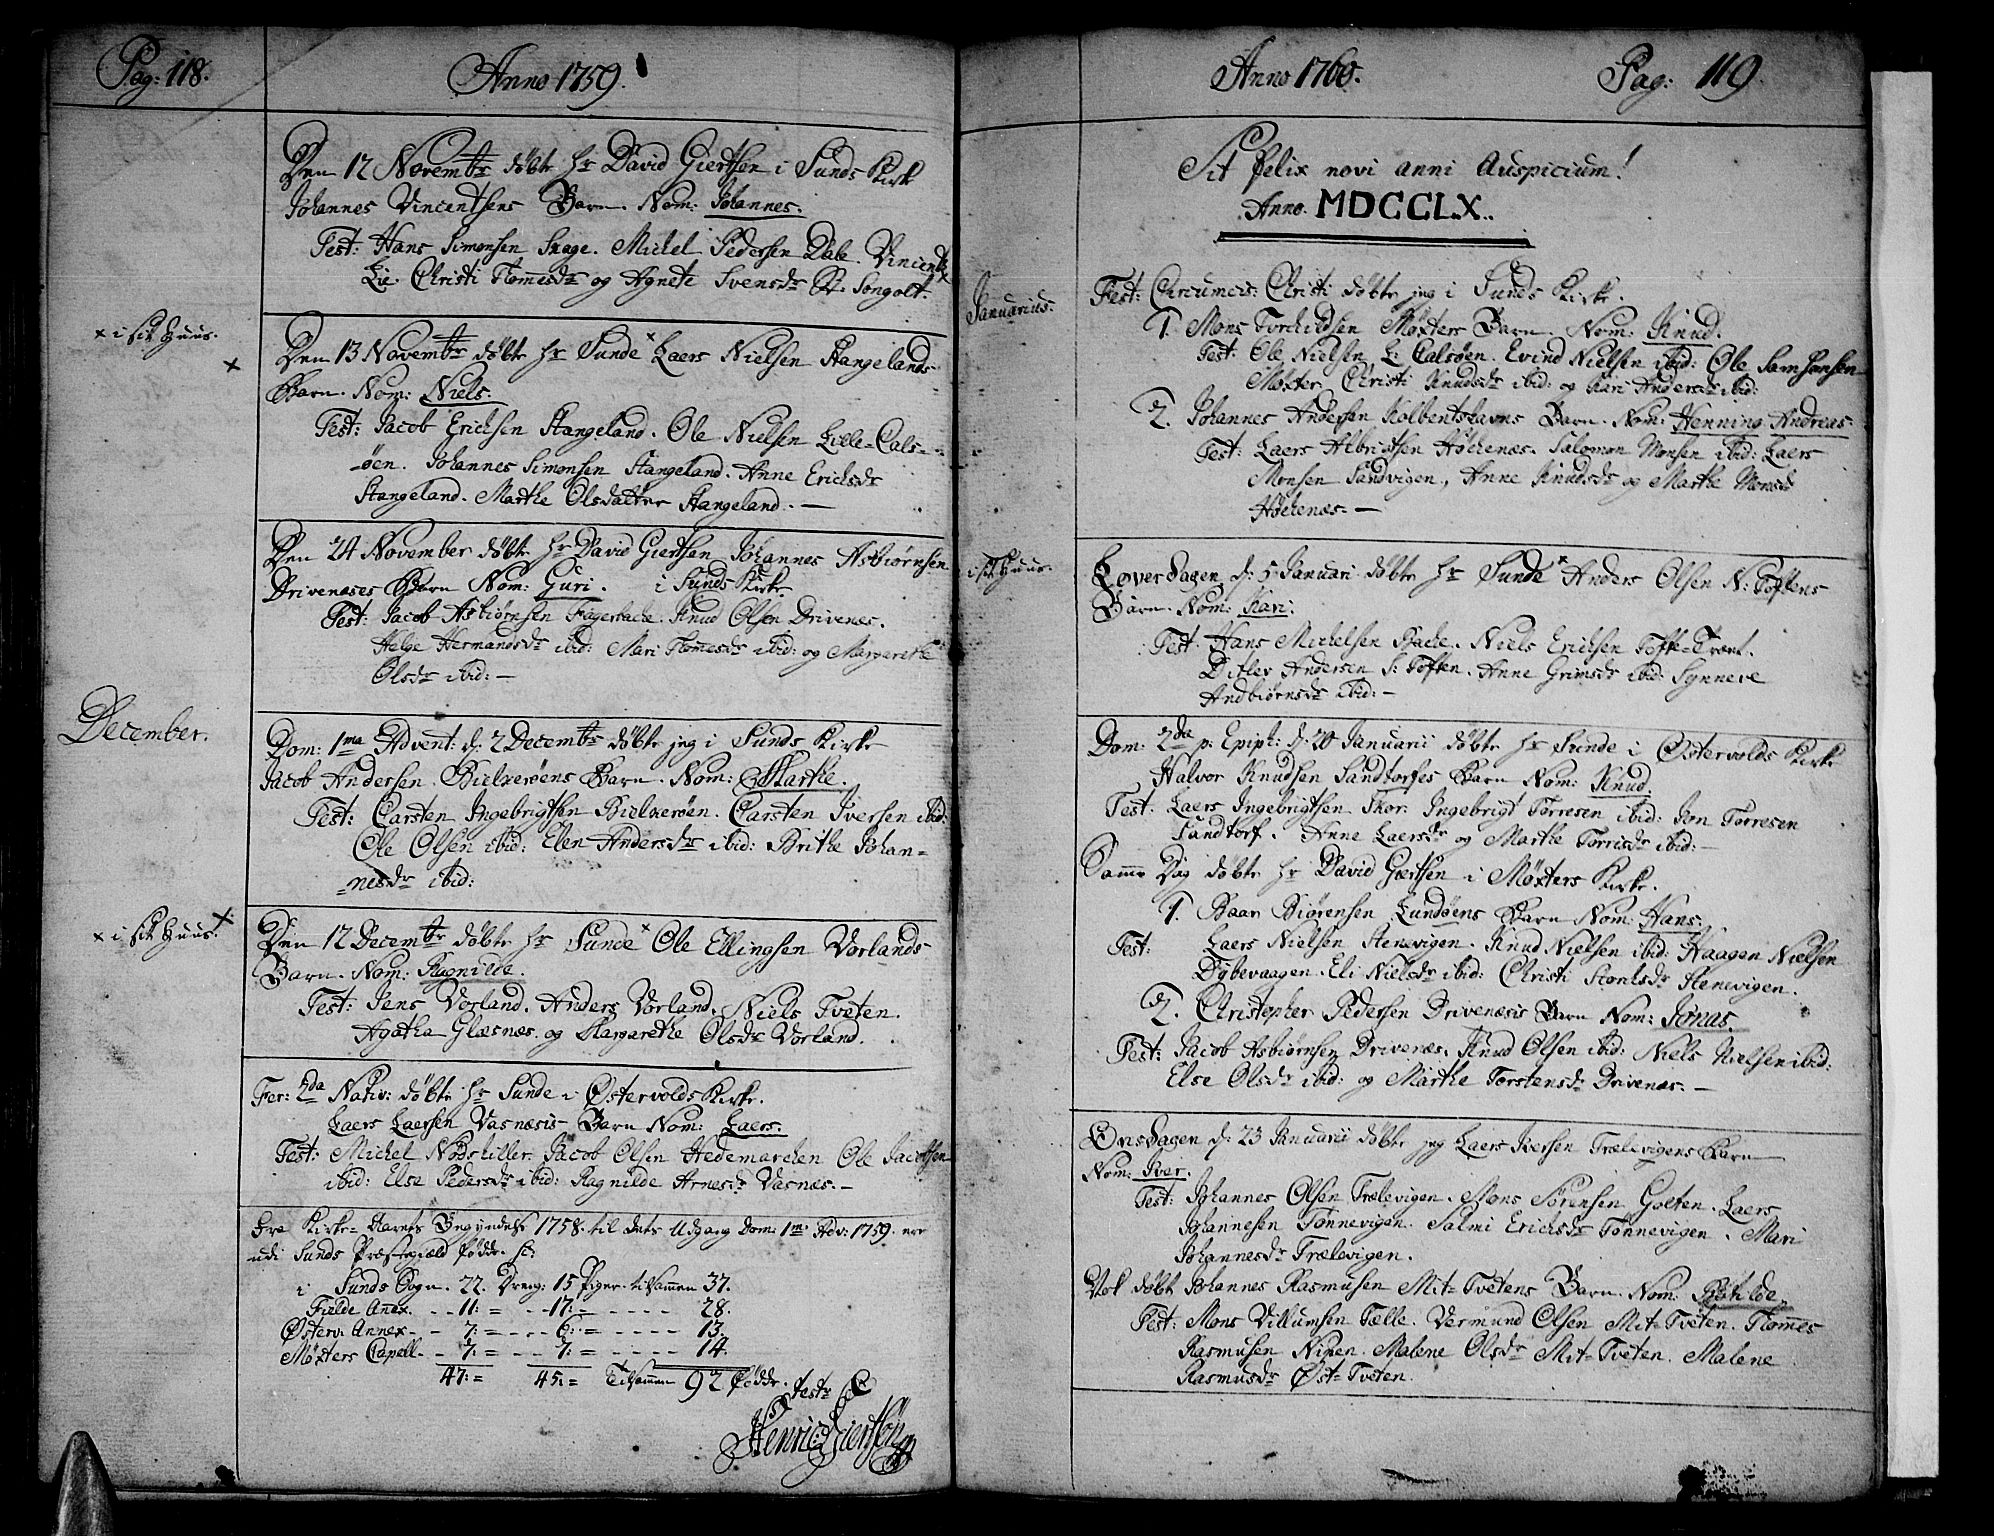 Pag: 118.
Anno 1759.
Den 12 Novembr døbte Hr David Giertsen i Sunds Kirke
Johannes Vincentsens Barn. Nom: Johannes.
Test: Hans Simonsen Skage. Michel Pedersen Dale. Vincent
Lie. Christi Thomesdr og Agnete Svensdr St: Songolt.
× i sit Huus.
×
Den 13 Novembr døbte Hr Sunde × Laers Nielsen Stangelands
Barn. Nom: Niels.
Test: Jacob Erichsen Stangeland. Ole Nielsen Lille-Cals-
-øen. Johannes Simonsen Stangeland. Anne Erichsdr
Stangeland. Marthe Olsdatter Stangeland. —
Den 24 November døbte Hr David Giertsen Johannes Asbiørnsen
Drivenæses Barn Nom: Guri. i Sunds Kirke.
Test: Jacob Asbiørnsen Fagerbache. Knud Olsen Drivenes.
Helge Hermandsdr ibid: Mari Thomesdr ibid: og Margarethe
Olsdr ibid: —
December.
Dom: 1ma Advent: d: 2 Decembr døbte jeg i Sunds Kirke
Jacob Andersen Bielkerøens Barn. Nom: Marthe.
Test: Carsten Ingebrigtsen Bielkerøen. Carsten Iversen ibid:
Ole Olsen ibid: Elen Andersdr ibid: Brithe Johan=
=nesdr ibid:
× i sit Huus. ×
Den 12 Decembr døbte Hr Sunde × Ole Ellingsen Vorlands
Barn. Nom: Ragnilde.
Test: Jens Vorland. Anders Vorland. Niels Tveten.
Agatha Glæsnæs. og Margarethe Olsdr Vorland.
Fer: 2da Nativ: døbte Hr Sunde i Østervolds Kirke.
Laers Laersen Vasnæsis Barn Nom: Laers.
Test: Michel Nodskiller. Jacob Olsen Hedemarchen Ole Jacobsen
ibid: Else Pedersdr ibid: Ragnilde Arnesdr Vasnæs. —
Fra Kirke-Aarets Begyndelse 1758 til dets Udgang Dom: 1ma Adv: 1759. ere
udi Sunds Præstegiæld fødde. sc:
i Sunds Sogn. 22. Dreng: 15 Piger. tilsammen 37.
Fielde Anex. - - 11: = - - 17: = - - - - - 28.
Østerv: Annex - - 7: = - - - 6: = - - - - - 13.
Møxters Capell - - 7: = - - - 7: = - - - - - 14.
47: = 45: = Tilsammen 92 fødde. test:
Henric Giertsøn
Anno 1760.
Pag: 119
Sit felix novi anni Auspicium!
Anno. MDCCLX.
Januarius.
Fest: Circumcis: Christi døbte jeg i Sunds Kirke.
1. Mons Torchildsen Møxters Barn. Nom: Knud.
Test: Ole Nielsen L: Calsøen. Evind Nielsen ibid: Ole Samsonsen
Møxter. Christi Knudsdr ibid: og Kari Andersdr ibid:
2. Johannes Andersen Kolbentshavns Barn. Nom: Henning Andreas
Test: Laers Albrigtsen Høchenæs. Salomon Monsen ibid: Laers
Monsen Sandvigen. Anne Knudsdr og Marthe Monsdr
Høchenæs. —
i sit Huus.
Løverdagen d: 5 Januari døbte Hr Sunde × Anders Olsen N: Toftens
Barn. Nom: Kari.
Test: Hans Michelsen Bache. Niels Erichsen Tofte-Træet.
Ditlev Andersen S: Toften. Anne Grimsdr ibid: Synneve
Andbiørnsdr ibid: —
Dom: 2da p: Epiph: d: 20 Januarii døbte Hr Sunde i Østervolds Kirke
Halvor Knudsen Sandtorfes Barn Nom: Knud.
Test: Laers Ingebrigtsen Skor. Ingebrigt Torresen ibid: Jon Torresen
Sandtorf. Anne Laersdr og Marthe Torrisdr ibid: —
Samme Dag døbte Hr David Giertsen i Møxters Kirke.
1. Baar Biørensen Lundøens Barn Nom: Hans.
Test: Laers Nielsen Stenevigen. Knud Nielsen ibid: Haagen Nielsen
Dybevaagen. Eli Nielsdr ibid: Christi Storchsdr Stenevigen.
2. Christopher Pedersen Drivenæsis Barn Nom: Jonas.
Test: Jacob Asbiørnsen Drivenæs. Knud Olsen ibid: Niels Nielsen ibid:
Else Olsdr ibid: og Marthe Torstensdr Drivenæs. —
Onsdagen d: 23 Januarii døbte jeg Laers Iversen Trælevigens Barn
Nom: Iver.
Test: Johannes Olsen Trælevigen. Mons Sørensen Golten. Laers
Johannesen Tønnevigen. Salmi Erichsdr Tønnevigen. Mari
Johannesdr Trælevigen.
Och døbt Johannes Rasmusen Mit-Tvetens Barn. Nom: Botilde.
Test: Mons Villumsen Tælle. Vermund Olsen Mit-Tveten. Thomes
Rasmusen Nipen. Malene Olsdr Mit-Tveten. Malene
Rasmusdr Øst-Tveten.